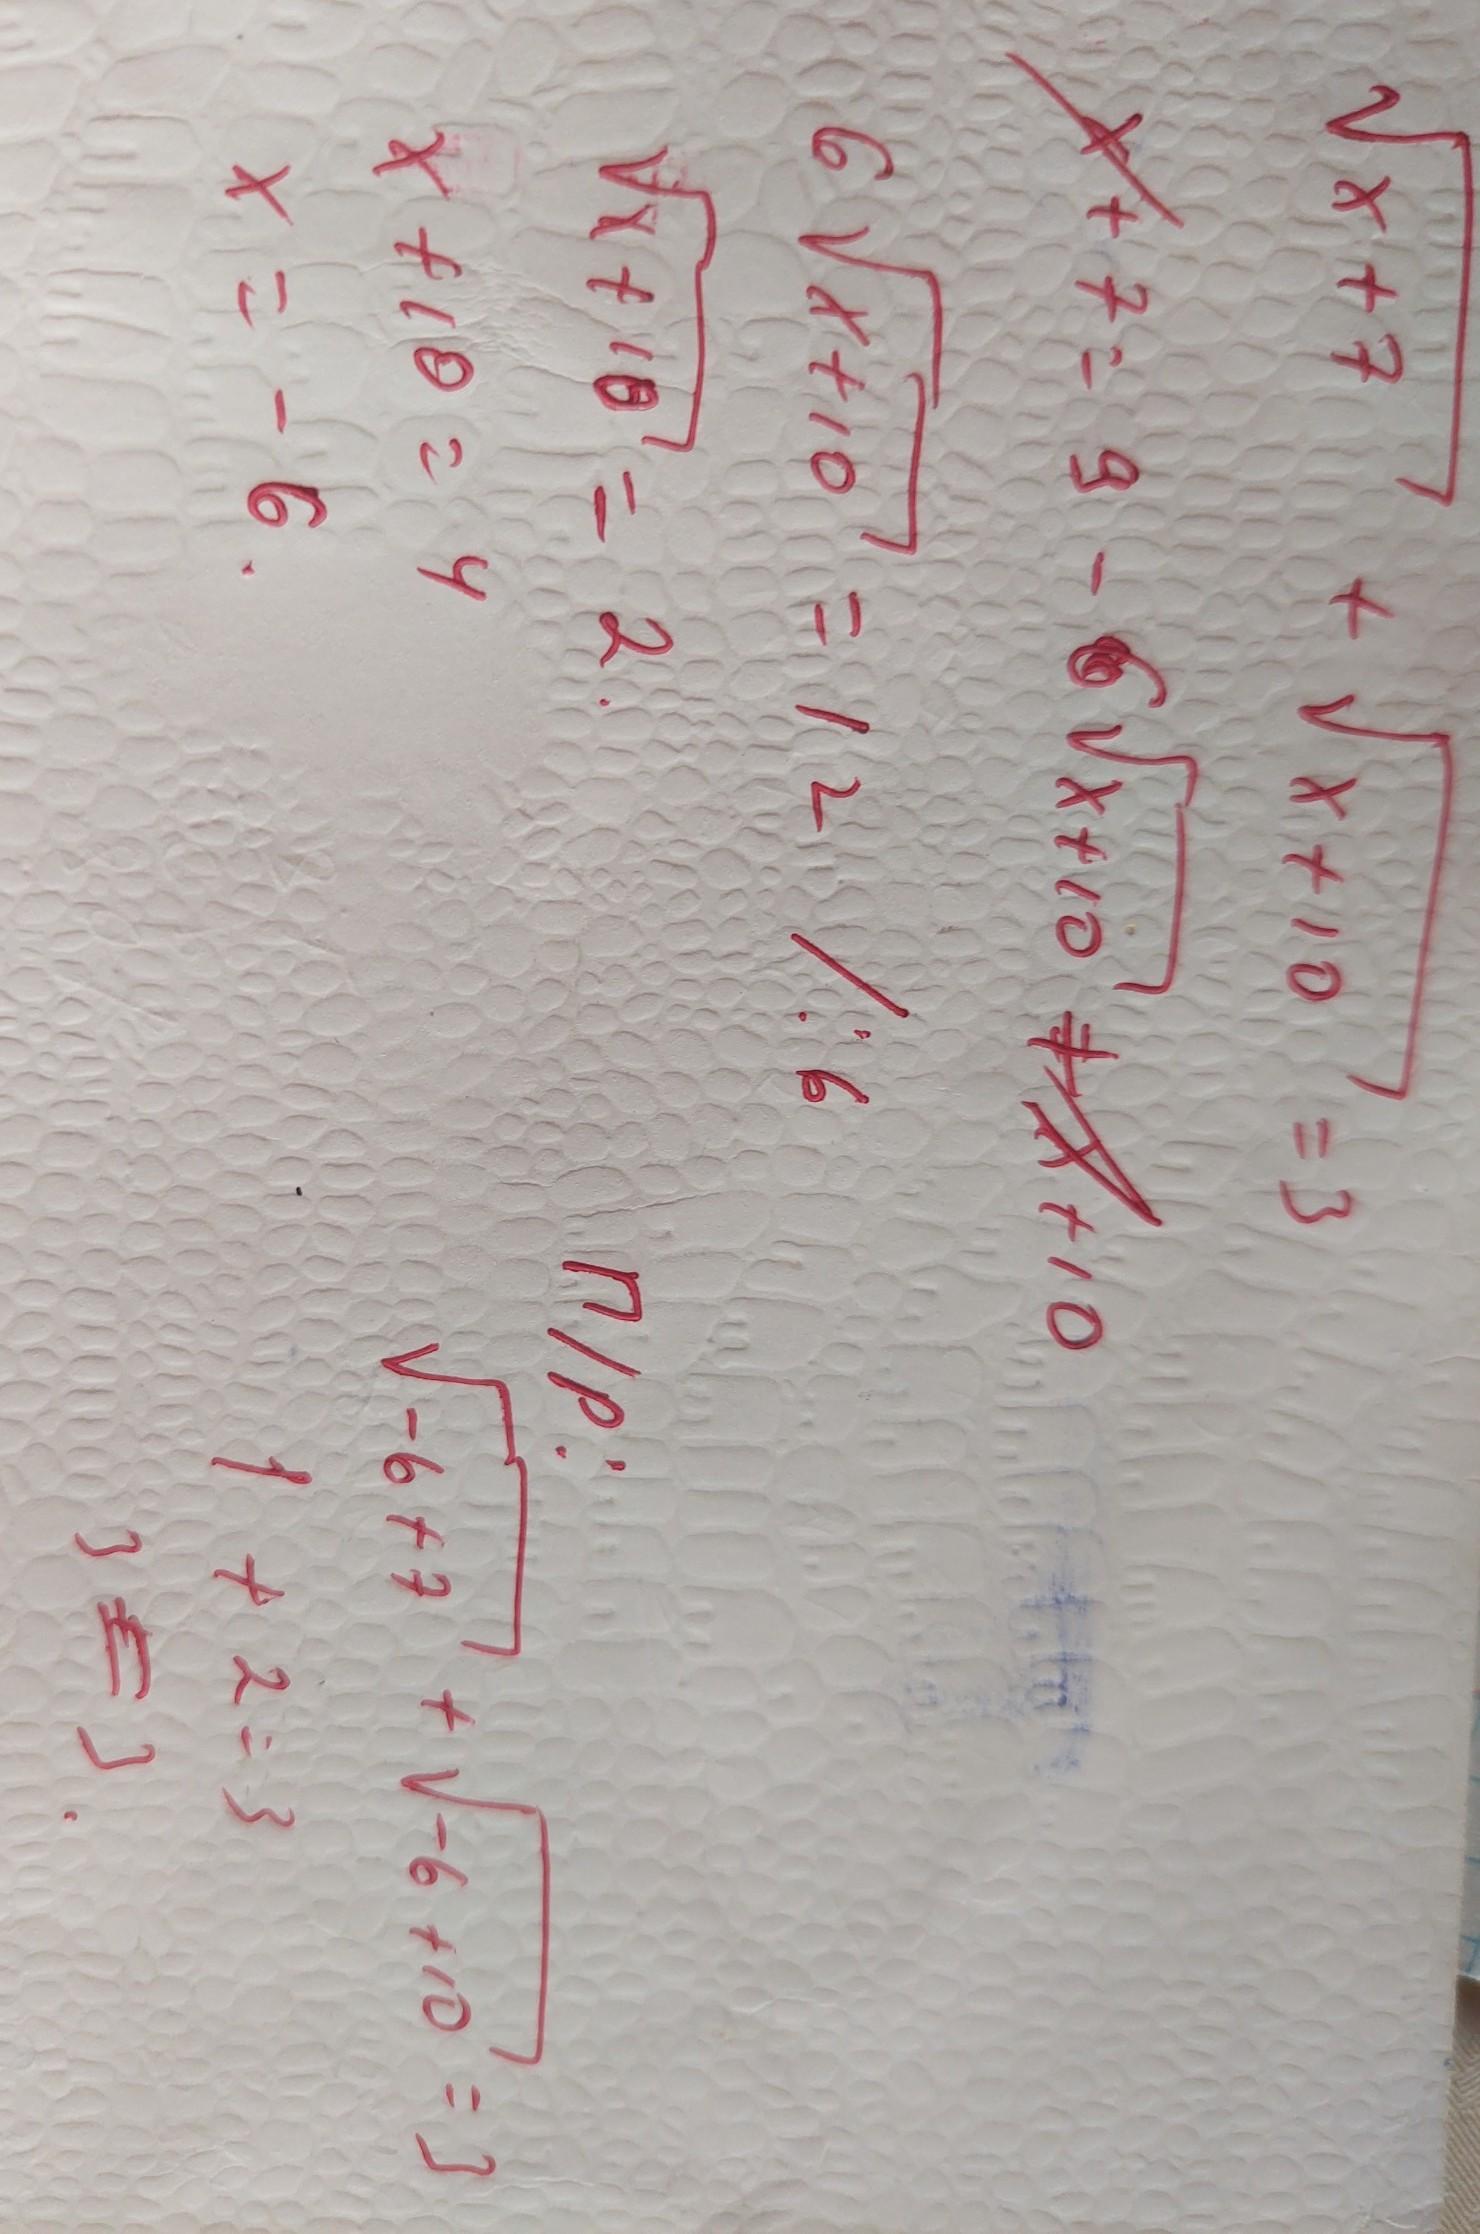 √x+7 + √x+10 = 3
x+7 = 9 - 6√x+10 + x+10
6√x+10 = 12 /:6
√x+10 = 2.
x+10 = 4
x = -6.
п/р:
√-6+7 + √-6+10 = 3
1 + 2 = 3
3 ≡ 3.